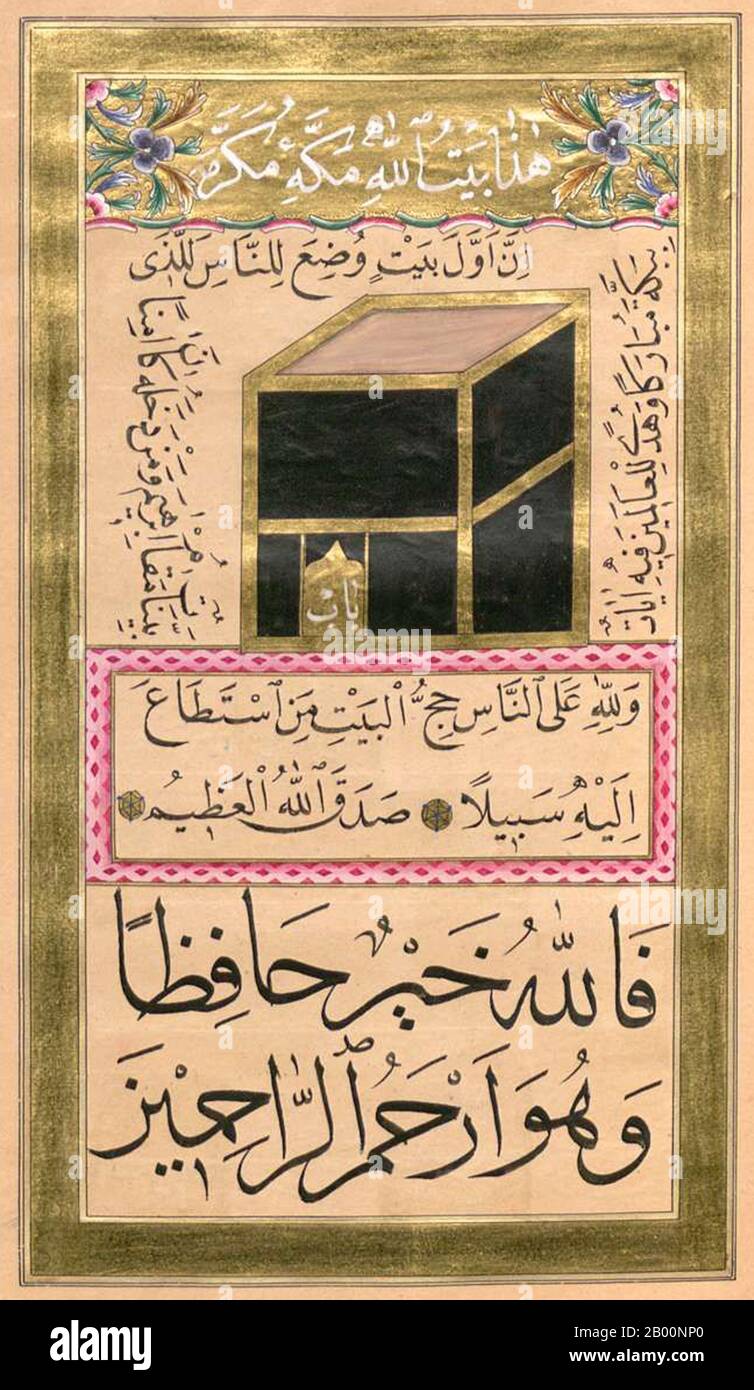 هٰذَا بَيْتُ ٱللّٰهِ مَكَّهٔ مُكَرَّمَه
اِنَّ اَوَّلَ بَيْتٍ وُضِعَ لِلنَّاسِ لَلَّذٖى
بِبَكَّةَ مُبَارَكًا وَهُدًى لِلْعَالَمٖينَ فٖيهِ اٰيَاتٌ
بَيِّنَاتٌ مَقَامُ اِبْرٰهٖيمَ وَمَنْ دَخَلَهُ كَانَ اٰمِنًا
بَابْ
وَلِلّٰهِ عَلَى ٱلنَّاسِ حِجُّ ٱلْبَيْتِ مَنِ ٱسْتَطَاعَ
اِلَيْهِ سَبٖيلًا صَدَقَ ٱللّٰهُ ٱلْعَظٖيمُ
فَاللّٰهُ خَيْرٌ حَافِظًا
وَهُوَ اَرْحَمُ ٱلرَّاحِمٖينَ
alamy
a
alamy
Image ID: B00NP0
www.alamy.com